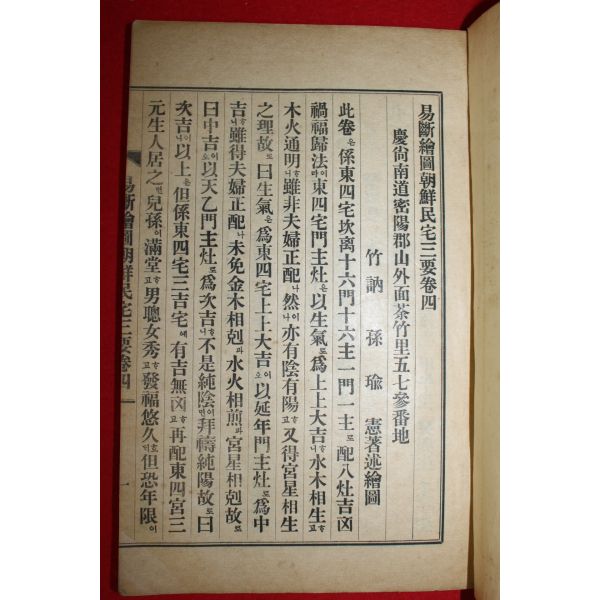 易斷繪圖朝鮮民宅三要卷四
慶尙南道密陽郡山外面茶竹里五七參番地
竹訥 孫瑜憲著述繪圖
此卷은係東四宅坎离十六門十六主一門一主로配八灶吉凶
禍福歸法이라東四宅門主灶은以生氣로爲上上大吉니水木相生고
木火通明니雖非夫婦正配나然이나亦有陰有陽고又得宮星相生
之理故로曰生氣은爲東四宅上上大吉이오以延年門主灶로爲中
吉니雖得夫婦正配나未免金木相剋과水火相煎과宮星相剋故로
曰中吉이오以天乙門主灶로爲次吉니不是純陰이면拜禱純陽故로曰
次吉이니以上은但係東四宅三吉宅에有吉無凶고再配東四宮三
元生人居之면兒孫이滿堂고男聰女秀고發福悠久어니와但恐年限이
易斷繪圖朝鮮民宅三要卷四 一